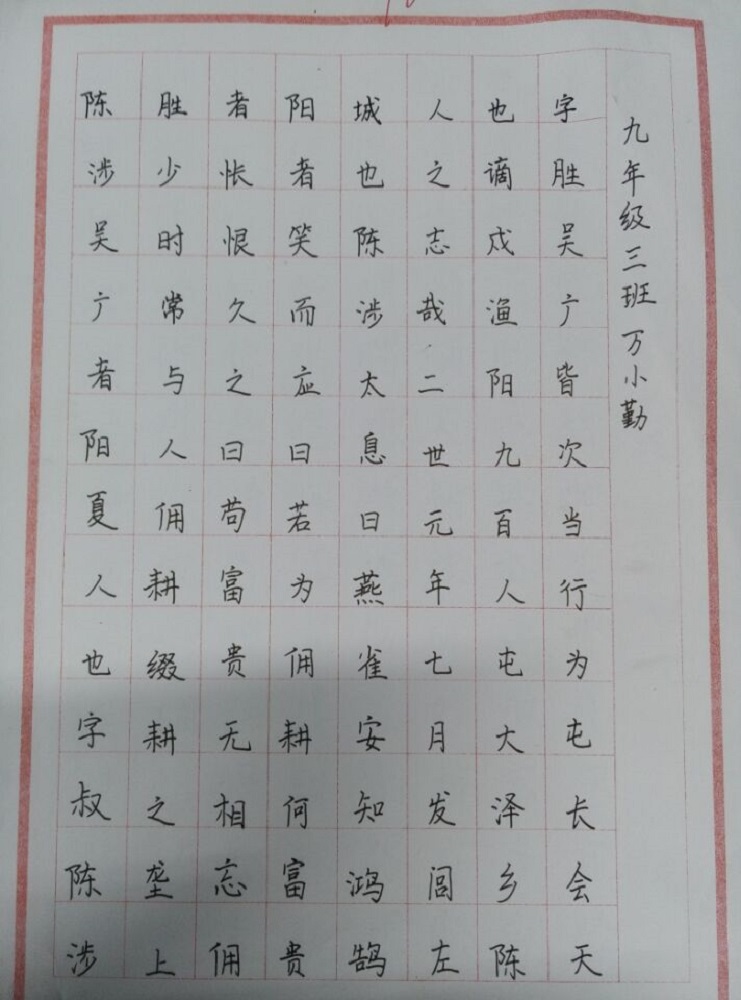 陈胜者阳城人也字
涉吴广者阳夏人也字叔陈涉
少时常与人佣耕缀耕之垄上
怅恨久之曰苟富贵无相忘佣
者笑而应曰若为佣耕何富贵
也陈涉太息曰燕雀安知鸿鹄
之志哉二世元年七月发闾左
谪戍渔阳九百人屯大泽乡陈
胜吴广皆次当行为屯长会天
九年级三班万小勤